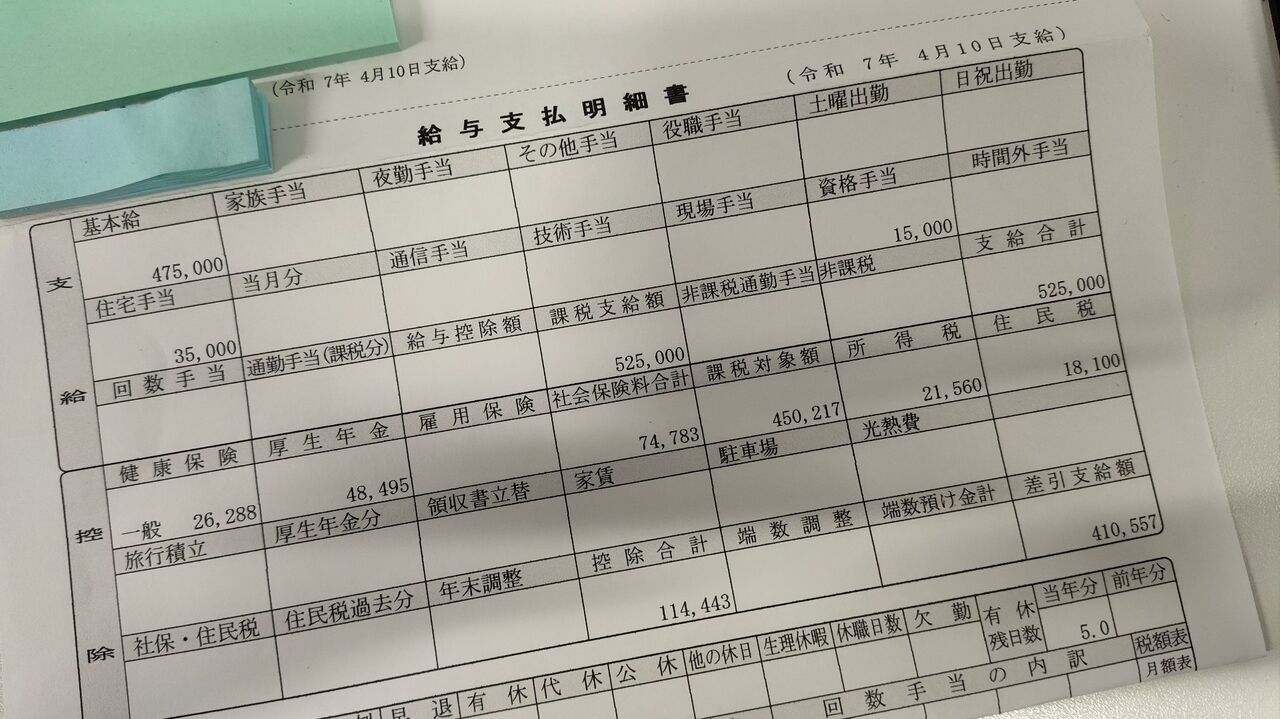 (令和 7年 4月10日支給)
(令和 7年 4月10日支給)
給与支払明細書
支給
基本給 家族手当 夜勤手当 その他手当 役職手当 土曜出勤 日祝出勤
475,000
住宅手当 当月分 通信手当 技術手当 現場手当 資格手当 時間外手当
35,000 15,000
回数手当 通勤手当(課税分) 給与控除額 課税支給額 非課税通勤手当 非課税 支給合計
525,000 525,000
控除
健康保険 厚生年金 雇用保険 社会保険料合計 課税対象額 所得税 住民税
一般 26,288 48,495 74,783 450,217 21,560 18,100
旅行積立 厚生年金分 領収書立替 家賃 駐車場 光熱費
社保・住民税 住民税過去分 年末調整 控除合計 端数調整 端数預け金計 差引支給額
114,443 410,557
退 有休 代休 公休 他の休日 生理休暇 休職日数 欠勤 有休残日数 当年分 前年分
5.0
回数手当の内訳 税額表
月額表